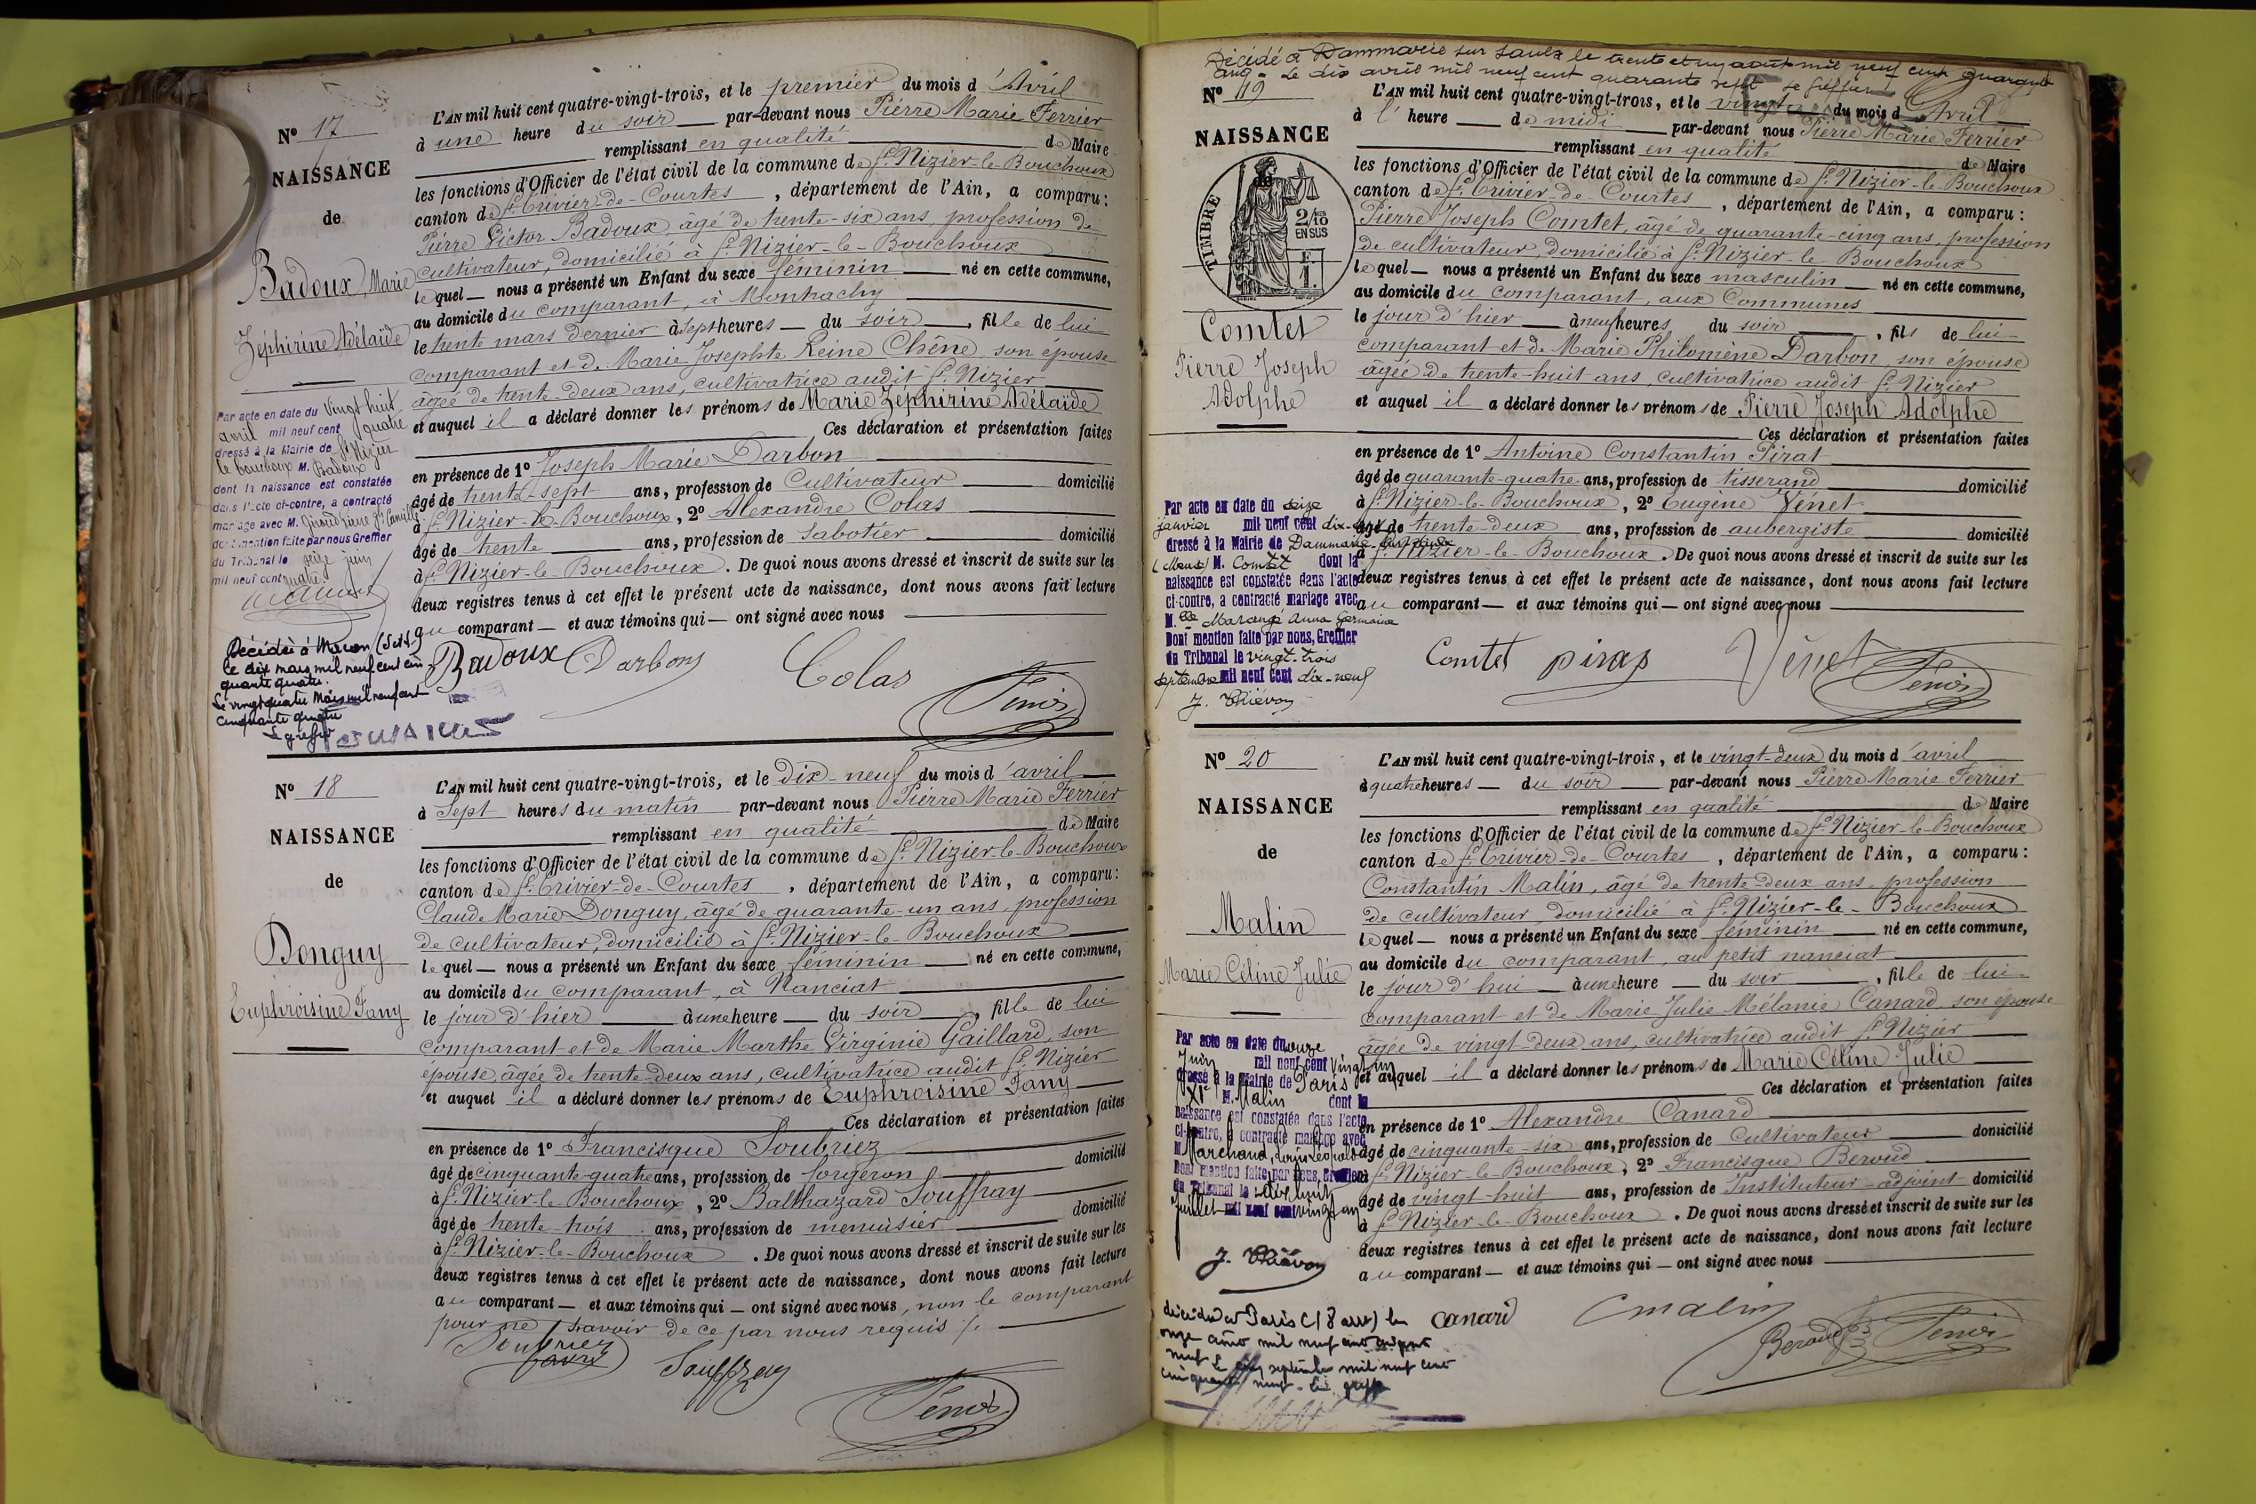 N° 17
NAISSANCE
de
Badoux, Marie
Zéphirine Adélaïde
L'AN mil huit cent quatre-vingt-trois, et le premier du mois d'Avril
à une heure du soir par-devant nous Pierre Marie Ferrier
remplissant en qualité de Maire
les fonctions d'Officier de l'état civil de la commune de St Nizier-le-Bouchoux
canton de St Trivier-de-Courtes, département de l'Ain, a comparu:
Pierre Victor Badoux, âgé de trente-six ans, profession de
cultivateur, domicilié à St Nizier-le-Bouchoux
lequel nous a présenté un Enfant du sexe féminin né en cette commune,
au domicile du comparant, à Montrachy
le trente mars dernier à sept heures du soir, fille de lui
comparant et de Marie Josephte Reine Chêne son épouse
âgée de trente-deux ans, cultivatrice audit St Nizier
et auquel il a déclaré donner les prénoms de Marie Zéphirine Adélaïde
Ces déclaration et présentation faites
en présence de 1° Joseph Marie Darbon
âgé de trente-sept ans, profession de Cultivateur domicilié
à St Nizier-le-Bouchoux, 2° Alexandre Colas
âgé de trente ans, profession de Sabotier domicilié
à St Nizier-le-Bouchoux. De quoi nous avons dressé et inscrit de suite sur les
deux registres tenus à cet effet le présent acte de naissance, dont nous avons fait lecture
au comparant et aux témoins qui ont signé avec nous
Badoux Darbon Colas
Par acte en date du Vingt huit
avril mil neuf cent quatre
dressé à la Mairie de St Nizier
le bouchoux M. Badoux
dont la naissance est constatée
dans l'acte ci-contre, a contracté
mariage avec M.
dont mention faite par nous Greffier
du Tribunal le seize juin
mil neuf cent quatre
Décédée à Macon (S et L)
le dix mars mil neuf cent cin
quante quatre.
Le vingt quatre Mars mil neuf cent
cinquante quatre
Le greffier
N° 18
NAISSANCE
de
Donguy
Euphroisine Fany
L'AN mil huit cent quatre-vingt-trois, et le dix-neuf du mois d'avril
à Sept heures du matin par-devant nous Pierre Marie Ferrier
remplissant en qualité de Maire
les fonctions d'Officier de l'état civil de la commune de St Nizier-le-Bouchoux
canton de St Trivier-de-Courtes, département de l'Ain, a comparu:
Claude Marie Donguy, âgé de quarante-un ans, profession
de cultivateur, domicilié à St Nizier-le-Bouchoux
lequel nous a présenté un Enfant du sexe féminin né en cette commune,
au domicile du comparant, à Nanciat
le jour d'hier à une heure du soir, fille de lui
comparant et de Marie Marthe Virginie Gaillard, son
épouse, âgée de trente-deux ans, cultivatrice audit St Nizier
et auquel il a déclaré donner les prénoms de Euphroisine Fany
Ces déclaration et présentation faites
en présence de 1° Francisque Soubriez
âgé de cinquante-quatre ans, profession de forgeron domicilié
à St Nizier-le-Bouchoux, 2° Balthazard Souffray
âgé de trente-trois ans, profession de menuisier domicilié
à St Nizier-le-Bouchoux. De quoi nous avons dressé et inscrit de suite sur les
deux registres tenus à cet effet le présent acte de naissance, dont nous avons fait lecture
au comparant et aux témoins qui ont signé avec nous, non le comparant
pour ne savoir de ce par nous requis
Soubriez Souffray
Décédé à Dammarie sur Saulx le trente et un août mil neuf cent quarante
Le dix avril mil neuf cent quarante sept Le Greffier
N° 19
NAISSANCE
de
TIMBRE
2/10
EN SUS
F
1.
Comtet
Pierre Joseph
Adolphe
L'AN mil huit cent quatre-vingt-trois, et le vingt du mois d'Avril
à l'heure de midi par-devant nous Pierre Marie Ferrier
remplissant en qualité de Maire
les fonctions d'Officier de l'état civil de la commune de St Nizier-le-Bouchoux
canton de St Trivier-de-Courtes, département de l'Ain, a comparu:
Pierre Joseph Comtet, âgé de quarante-cinq ans, profession
de cultivateur, domicilié à St Nizier-le-Bouchoux
lequel nous a présenté un Enfant du sexe masculin né en cette commune,
au domicile du comparant, aux Communes
le jour d'hier à neuf heures du soir, fils de lui
comparant et de Marie Philomène Darbon son épouse
âgée de trente-huit ans, cultivatrice audit St Nizier
et auquel il a déclaré donner les prénoms de Pierre Joseph Adolphe
Ces déclaration et présentation faites
en présence de 1° Antoine Constantin Pirat
âgé de quarante-quatre ans, profession de tisserand domicilié
à St Nizier-le-Bouchoux, 2° Eugène Vénet
âgé de trente-deux ans, profession de aubergiste domicilié
à St Nizier-le-Bouchoux. De quoi nous avons dressé et inscrit de suite sur les
deux registres tenus à cet effet le présent acte de naissance, dont nous avons fait lecture
au comparant et aux témoins qui ont signé avec nous
Comtet Pirat Vénet
Par acte en date du seize
janvier mil neuf cent dix-
dressé à la Mairie de Dammarie-sur-Saulx
(Meuse) M. Comtet dont la
naissance est constatée dans l'acte
ci-contre, a contracté mariage avec
M. elle Marangé Anna Germaine
Dont mention faite par nous, Greffier
du Tribunal le vingt-trois
septembre mil neuf cent dix-neuf
N° 20
NAISSANCE
de
Malin
Marie Céline Julie
L'AN mil huit cent quatre-vingt-trois, et le vingt-deux du mois d'avril
à quatre heures du soir par-devant nous Pierre Marie Ferrier
remplissant en qualité de Maire
les fonctions d'Officier de l'état civil de la commune de St Nizier-le-Bouchoux
canton de St Trivier-de-Courtes, département de l'Ain, a comparu:
Constantin Malin, âgé de trente-deux ans, profession
de cultivateur domicilié à St Nizier-le-Bouchoux
lequel nous a présenté un Enfant du sexe féminin né en cette commune,
au domicile du comparant, au petit nanciat
le jour d'hui à une heure du soir, fille de lui
comparant et de Marie Julie Mélanie Canard son épouse
âgée de vingt-deux ans, cultivatrice audit St Nizier
et auquel il a déclaré donner les prénoms de Marie Céline Julie
Ces déclaration et présentation faites
en présence de 1° Alexandre Canard
âgé de cinquante-six ans, profession de Cultivateur domicilié
à St Nizier-le-Bouchoux, 2° Francisque Beroud
âgé de vingt-huit ans, profession de Instituteur-adjoint domicilié
à St Nizier-le-Bouchoux. De quoi nous avons dressé et inscrit de suite sur les
deux registres tenus à cet effet le présent acte de naissance, dont nous avons fait lecture
au comparant et aux témoins qui ont signé avec nous
Canard Cmalin Beroud
Par acte en date du onze
Juin mil neuf cent vingt un
dressé à la Mairie de Paris
XIe M. Malin dont la
naissance est constatée dans l'acte
ci-contre, a contracté mariage avec
M. Marchand, Louis Léopold
Dont mention faite par nous, Greffier
du Tribunal le
Juillet mil neuf cent vingt un
décédée à Paris le
onze août mil neuf cent cinquante
neuf Le cinq septembre mil neuf cent
cinquante neuf - Le greffier